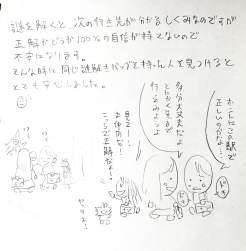 謎を解くと次の行き先が分かるしくみなのですが
正解かどうか100%の自信が持てないので
不安になります。
そんな時に同じ謎解きバッグを持った人を見つけると
とても安心しました。
ホントにこの駅で
正しいのかな…
多分大丈夫だよ
とにかく先まで
行ってみようよ
見て!
お仲間だ!
ここで正解だよ!